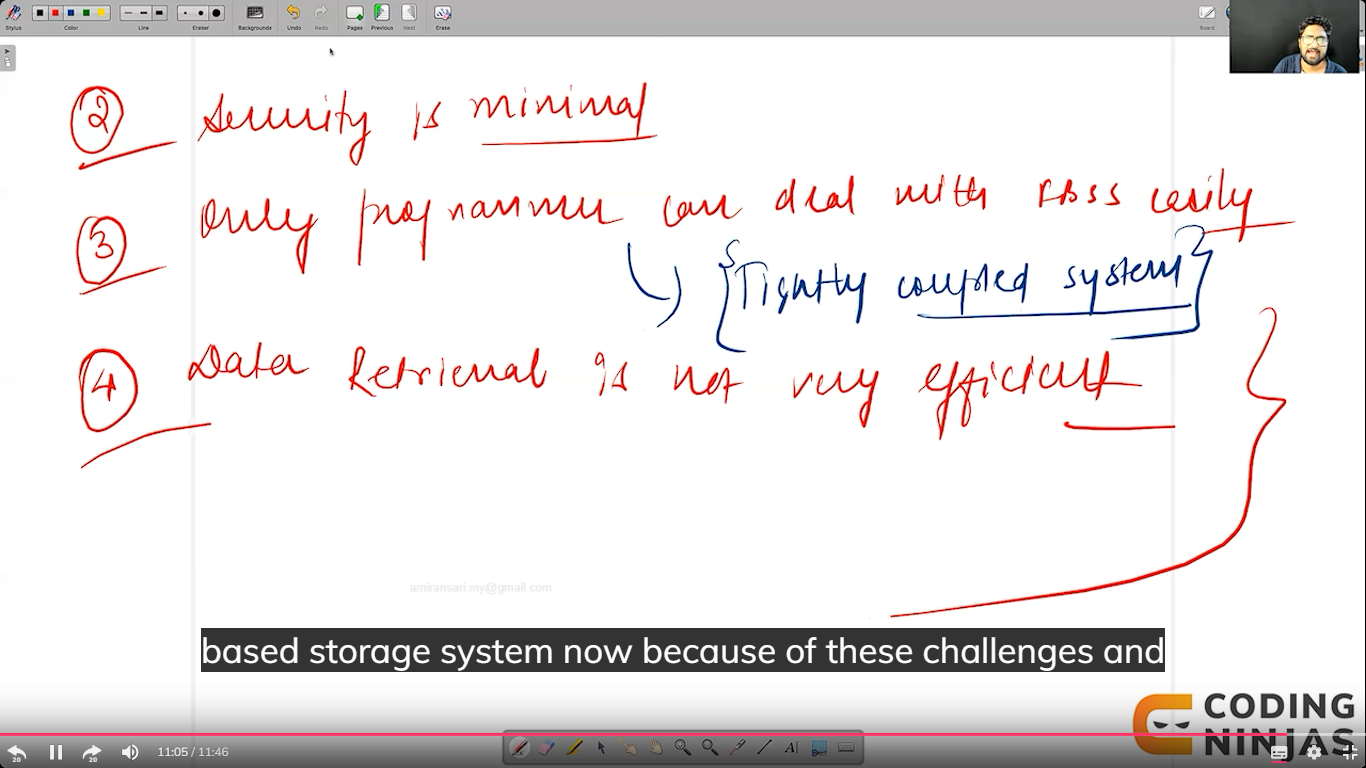 Stylus Color Line Eraser Backgrounds Undo Redo Pages Previous Next Erase Board
② Security is minimal
③ Only programmer can deal with FBSS easily
{Tightly coupled system}
④ Data Retrieval is not very efficient
amiransari.my@gmail.com
based storage system now because of these challenges and
CODING
NINJAS
20 20 11:05 / 11:46